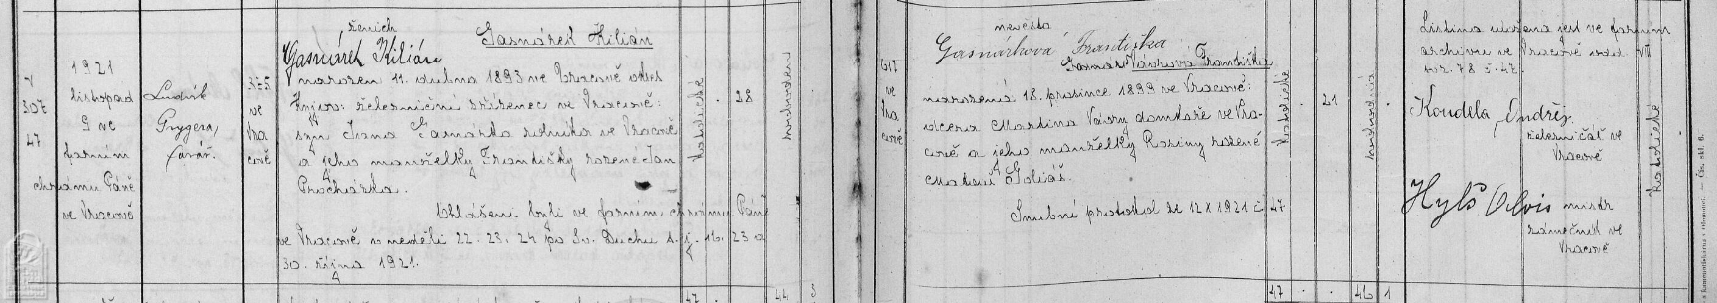 1921
listopad
9 ve
farním
chrámu Páně
ve Vracově
V
307
47
Ludvík
Grygera,
farář.
335
ve
Vra
cově
ženich
Gasnárek Kilián
Gasnárek Kilián
narozen 11. dubna 1893 ve Vracově okres
Kyjov: železniční zřízenec ve Vracově:
syn Jana Gasnárka rolníka ve Vracově
a jeho manželky Františky rozené Jan
Procházka.
Ohlášeni byli ve farním chrámu Páně
ve Vracově v neděli 22. 23. 24 po Sv. Duchu t. j. 16. 23 a
30. října 1921.
katolické
28
47
44
617
ve
Vra
cově
nevěsta
Gasnárková Františka
Vávrová Františka
narozená 18. prosince 1899 ve Vracově:
dcera Martina Vávry domkaře ve Vra-
cově a jeho manželky Rosiny rozené
Goliáš.
Smluvní protokol ze 12 X 1921 č. 47
katolické
21
47
46
1
Listina uložena jest ve farním
archivu ve Vracově odd. VII
78
47.
Koudela Ondřej
ve
Vracově
Hýbl Alois mistr
zámečník ve
Vracově
katolické